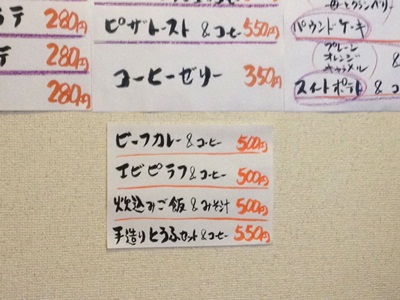 ラテ 280円
テ 280円
280円
ピザトースト&コーヒー 550円
コーヒーゼリー 350円
パウンドケーキ
プレーン
オレンジ
キャラメル
&
スイートポテト &コ
ビーフカレー&コーヒー 500円
エビピラフ&コーヒー 500円
炊込みご飯&みそ汁 500円
手造りとうふセット&コーヒー 550円